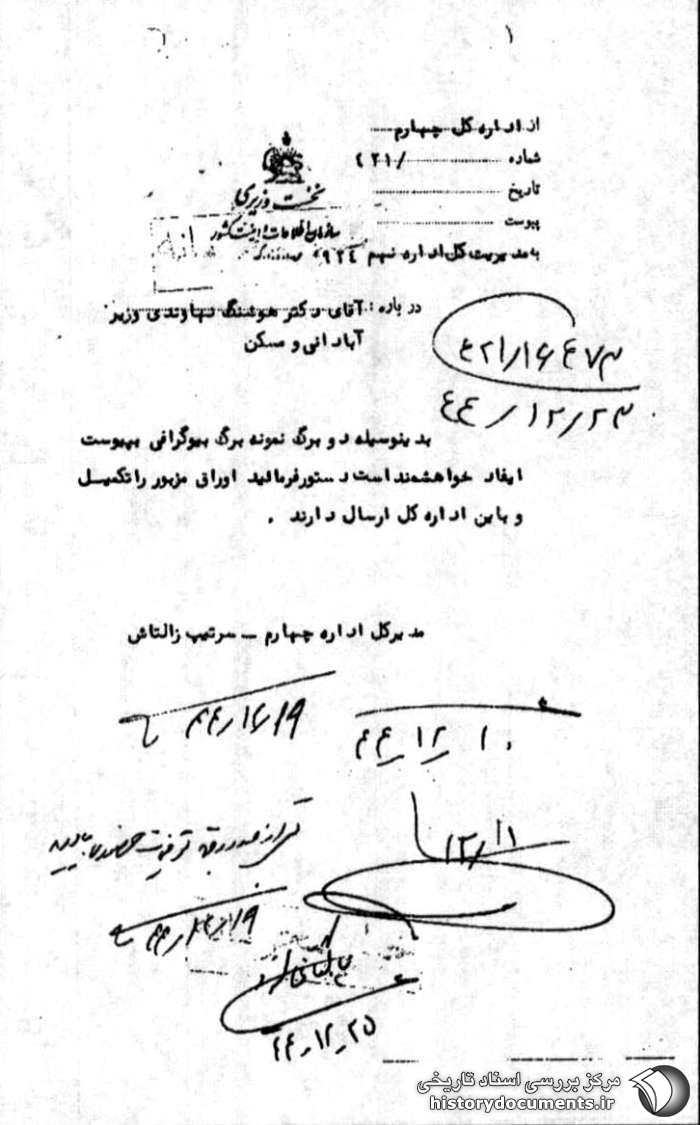 ۱
از اداره کل چهارم
شماره ۴۲۱/
تاریخ
پیوست
نخست وزیری
سازمان اطلاعات و امنیت کشور
به مدیریت کل اداره نهم ۹۲۴
در باره: آقای دکتر هوشنگ نهاوندی وزیر
آبادانی و مسکن
۴۲۱/۱۶۴۷۳
۴۴/۱۲/۲۳
بدینوسیله دو برگ نمونه برگ بیوگرافی بپیوست
ایفاد خواهشمند است دستور فرمائید اوراق مزبور را تکمیل
و باین اداره کل ارسال دارند .
مدیرکل اداره چهارم – سرتیپ زالتاش
۴۴/۱۲/۱۹
۴۴/۱۲/۱۰
۱۲/۱۱
۴۴/۱۲/۱۹
۴۴/۱۲/۲۵
مرکز بررسی اسناد تاریخی
historydocuments.ir